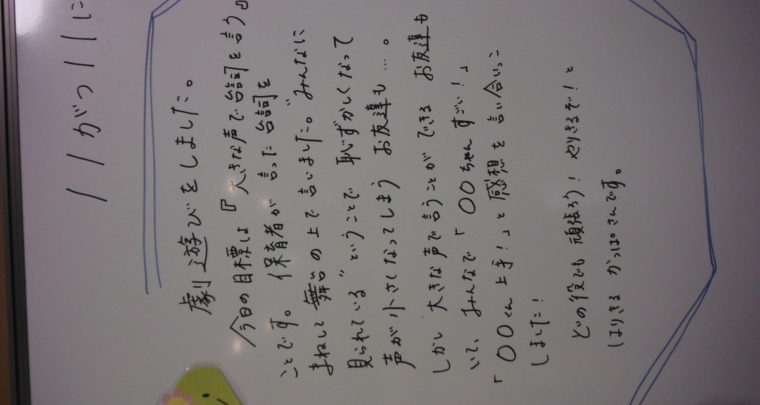 11がつ11に
劇遊びをしました。
今日の目標は『大きな声で台詞を言う』
ことです。 保育者が 言った台詞を
まねして 舞台の上で言いました。"みんなに
見られている"ということで 恥ずかしくなって
声が小さくなってしまう お友達も…。
しかし 大きな声で言うことができる お友達も
いて、みんなで「〇〇ちゃん すごい!」
「〇〇くん 上手!」と 感想を 言い合いっこ
しました!
どの役でも 頑張ろう! やりきるぞ!と
はりきる かっぱさんです。